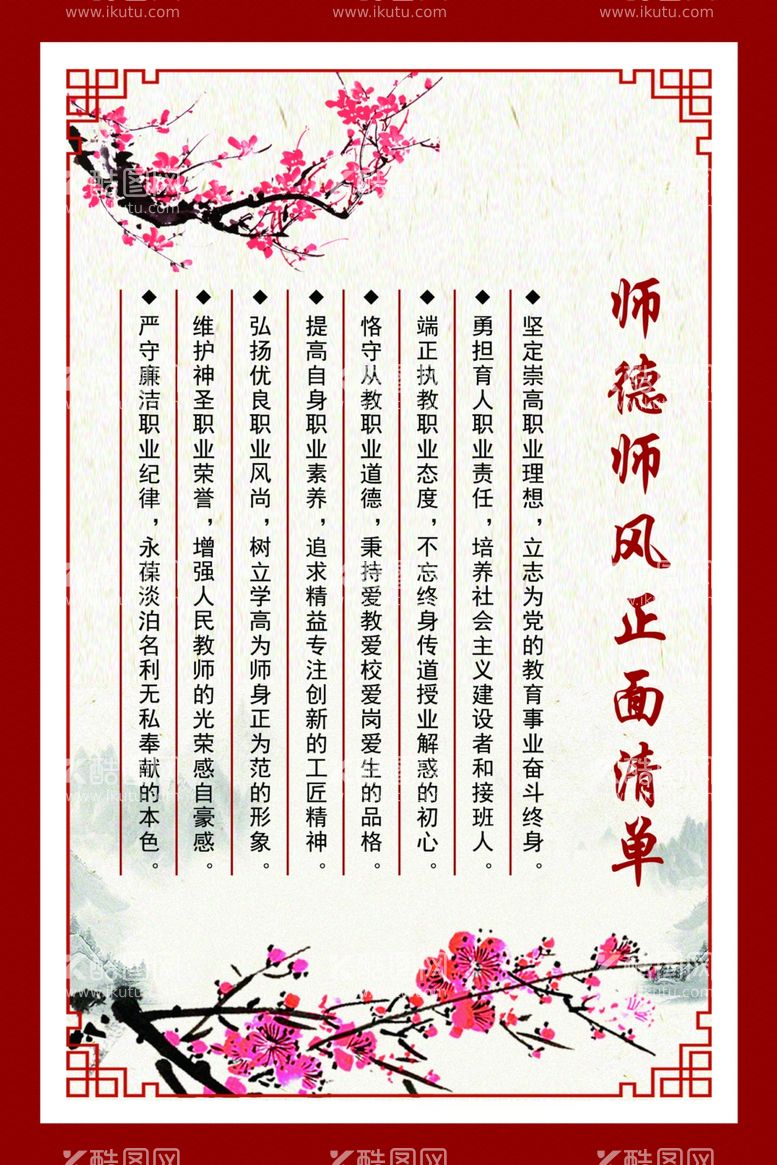 师德师风正面清单
◆坚定崇高职业理想，立志为党的教育事业奋斗终身。
◆勇担育人职业责任，培养社会主义建设者和接班人。
◆端正执教职业态度，不忘终身传道授业解惑的初心。
◆恪守从教职业道德，秉持爱教爱校爱岗爱生的品格。
◆提高自身职业素养，追求精益专注创新的工匠精神。
◆弘扬优良职业风尚，树立学高为师身正为范的形象。
◆维护神圣职业荣誉，增强人民教师的光荣感自豪感。
◆严守廉洁职业纪律，永葆淡泊名利无私奉献的本色。
酷图网
www.ikutu.com